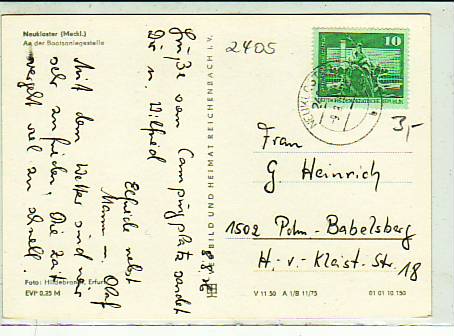 Neukloster (Meckl.)
An der Bootsanlegestelle
8.8.76
Grüße vom Campingplatz sendet
Dir u. Wilfried
Elfriede nebst
Mann u. Olaf
Mit dem Wetter sind wir
sehr zufrieden. Die Zeit
vergeht viel zu schnell.
Foto: Hildebrandt, Erfurt
EVP 0,25 M
BILD UND HEIMAT REICHENBACH i. V.
2405
10
DEUTSCHE DEMOKRATISCHE REPUBLIK
NEUKLOSTER
3,-
Frau
G. Heinrich
1502 Potsm.-Babelsberg
H.-v.-Kleist-Str. 18
V 11 50 A 1/B 11/75 01 01 10 150